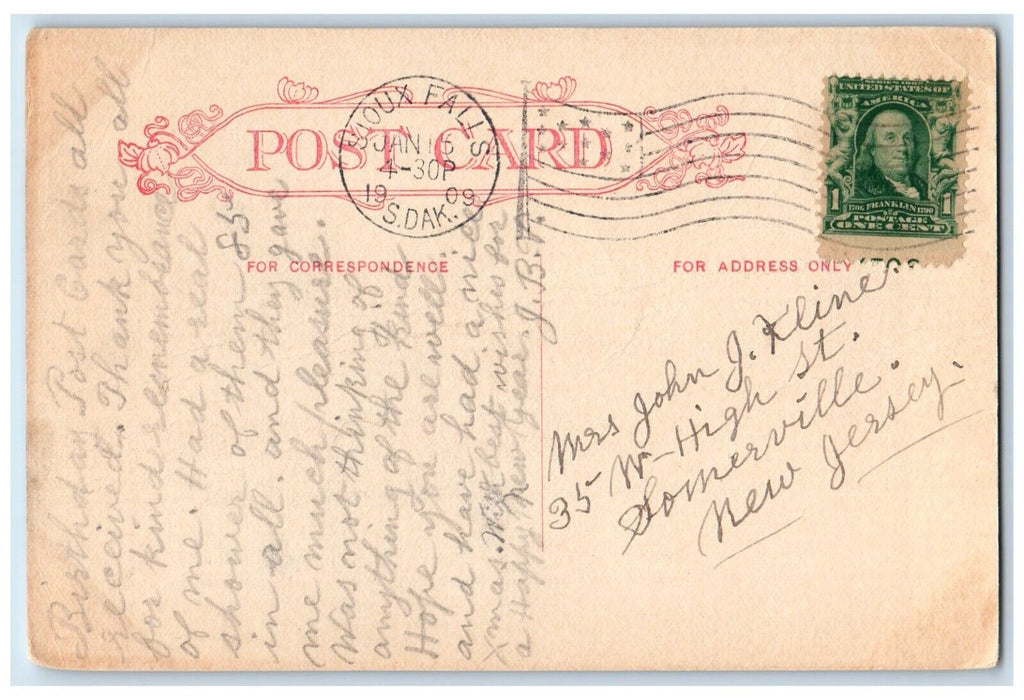 POST CARD
SIOUX FALLS
JAN 15
4-30P
1909
S.DAK.
SERIES 1902
UNITED STATES OF
AMERICA
1 1
1706 FRANKLIN 1790
POSTAGE
ONE CENT
FOR CORRESPONDENCE
FOR ADDRESS ONLY
Birthday Post Cards all
received. Thank you all
for kind remembrance
of me. Had a real
shower of them 85
in all. and they gave
me much pleasure.
Was not thinking of
anything of the kind.
Hope you are well.
and have had a nice
Xmas. With best wishes for
a Happy New Year. J.B.V.
Mrs John J. Kline
35 W-High St.
Somerville.
New Jersey.